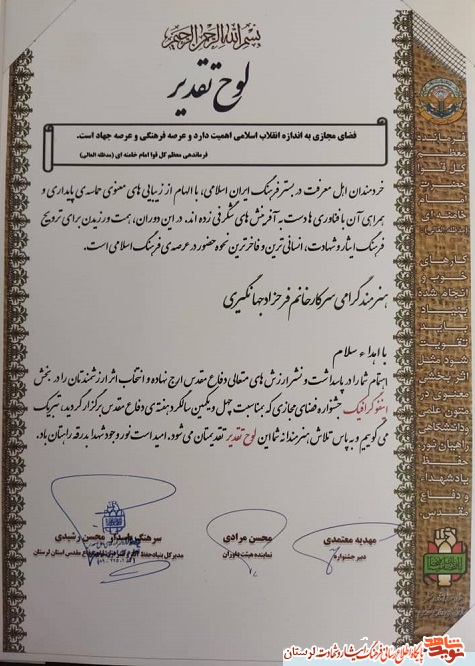 بسم الله الرحمن الرحیم
لوح تقدیر
فضای مجازی به اندازه انقلاب اسلامی اهمیت دارد و عرصه فرهنگی و عرصه جهاد است.
فرماندهی معظم کل قوا امام خامنه ای (مدظله العالی)
خردمندان اهل معرفت در بستر فرهنگ ایران اسلامی، با الهام از زیبایی های معنوی حماسه ی پایداری و
همراهی آن با فناوری ها دست به آفرینش های شگرفی زده اند. در این دوران، همت ورزیدن برای ترویج
فرهنگ ایثار و شهادت، انسانی ترین و فاخرترین نحوه حضور در عرصه ی فرهنگ اسلامی است.
هنرمند گرامی سرکار خانم فرحزاد جهانگیری
با اهداء سلام
اهتمام شما را در پاسداشت و نشر ارزش های متعالی دفاع مقدس ارج نهاده و انتخاب اثر ارزشمندتان را در بخش
اینفوگرافیک جشنواره فضای مجازی که بمناسبت چهل و یکمین سالگرد هفته ی دفاع مقدس برگزار گردید، تبریک
می گوییم و به پاس تلاش هنرمندانه شما این لوح تقدیر تقدیمتان می شود. امید است نور وجود شهدا بدرقه راهتان باد.
مهدیه معتمدی
دبیر جشنواره
محسن مرادی
نماینده هیئت داوران
سرهنگ پاسدار محسن رشیدی
مدیرکل بنیاد حفظ آثار و نشر ارزشهای دفاع مقدس استان لرستان
فرمانده
معظم
کل قوا
حضرت
امام
خامنه ای
(مدظله العالی)
کارهای
خوب و
انجام شده
بنیاد
باید
تقویت
شود مثل
اثر بخشی
معنوی در
متون علمی
و دانشگاهی
راهیان نور
حفظ
یاد شهدا
و دفاع
مقدس
نوید شاهد
پایگاه اطلاع رسانی فرهنگ ایثار و شهادت لرستان